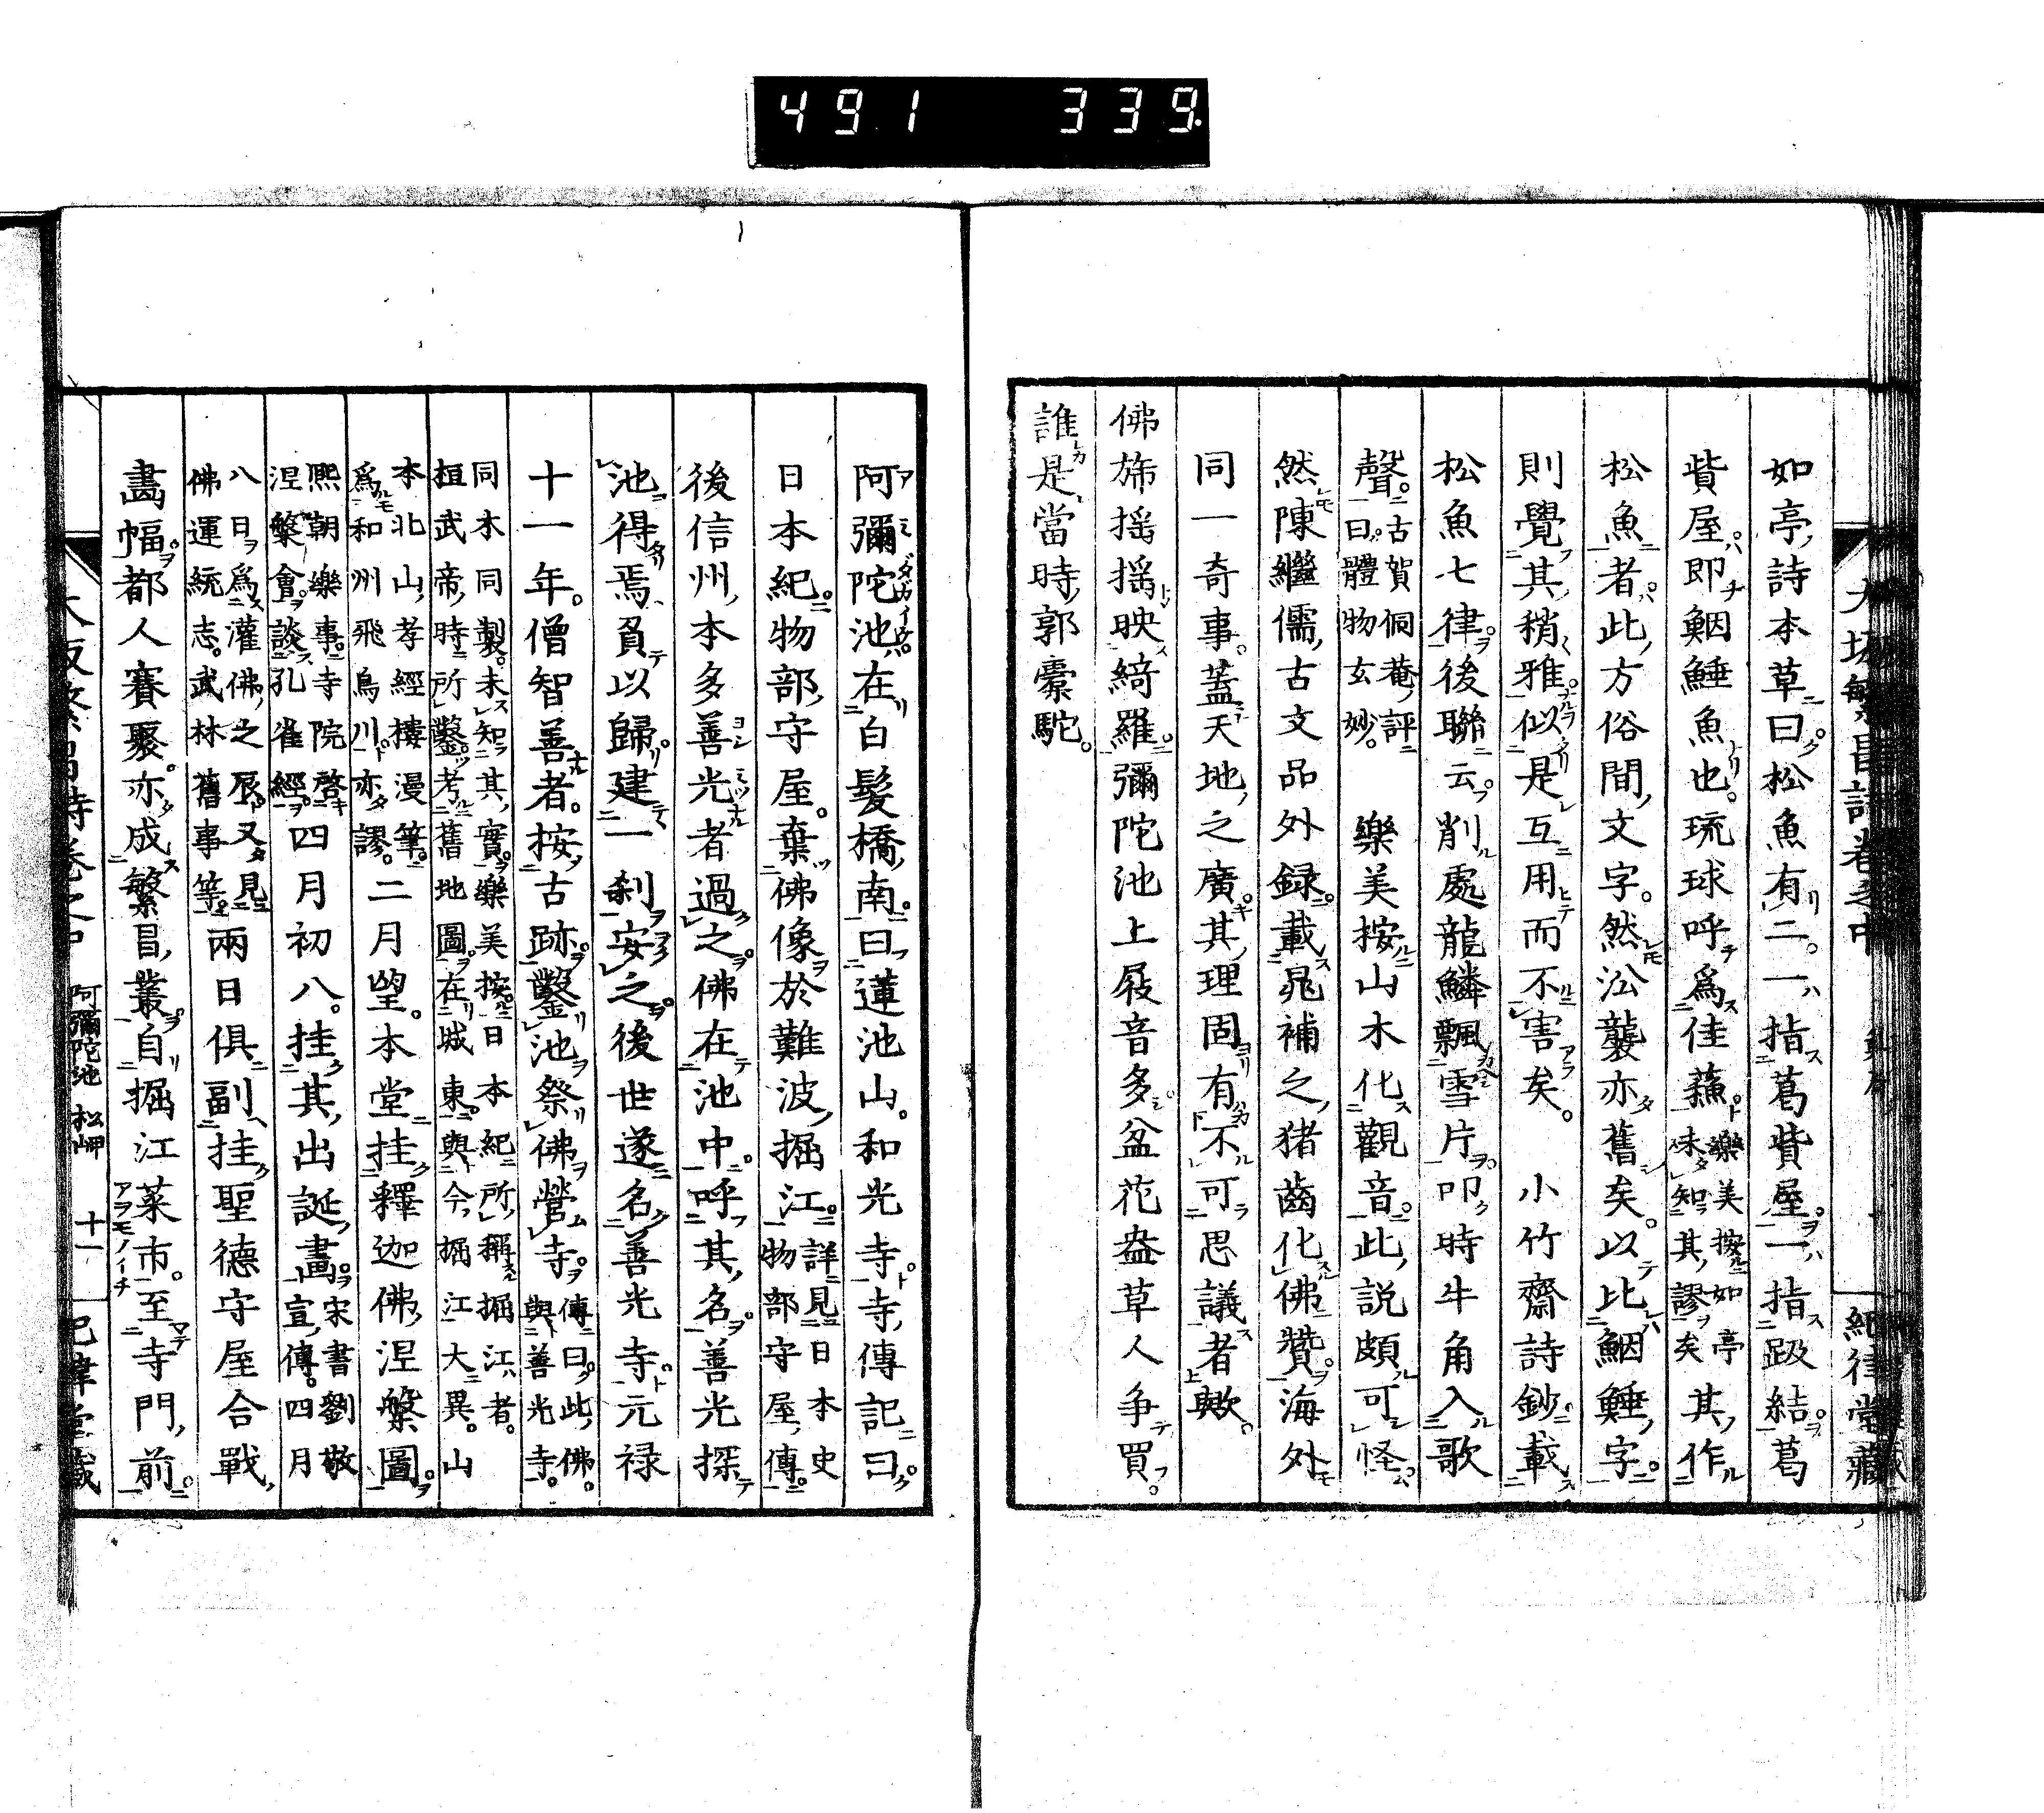 491 339
如亭詩本草曰松魚有二一指葛貲屋一指趿結葛
貲屋即鮂鯅魚也琉球呼爲佳蘓樂美按如亭
未知其謬矣其作
松魚者此方俗間文字然㳂襲亦舊矣以比鮂鯅字
則覺其稍雅似是互用而不害矣 小竹齋詩鈔載
松魚七律後聯云削處龍鱗飄雪片叩時牛角入歌
聲古賀侗菴評
曰體物玄妙 樂美按山木化觀音此説頗可怪
然陳繼儒古文品外録載晁補之猪齒化佛贊海外
同一奇事蓋天地之廣其理固有不可思議者歟
佛旆揺揺映綺羅彌陀池上屐音多盆花盎草人争買
誰是當時郭橐駝
阿彌陀池在白髮橋南曰蓮池山和光寺寺傳記曰
日本紀物部守屋棄佛像於難波掘江詳見日本史
物部守屋傳
後信州本多善光者過之佛在池中呼其名善光探
池得焉負以歸建一刹安之後世遂名善光寺元禄
十一年僧智善者按古跡鑿池祭佛營寺傳曰此佛
與善光寺
同木同製未知其實樂美按日本紀所稱掘江者
桓武帝時所鑿考舊地圖在城東與今掘江大異山
本北山孝經樓漫筆
爲和州飛鳥川亦謬二月望本堂挂釋迦佛涅槃圖
熈朝樂事寺院啓
涅槃會談孔雀經四月初八挂其出誕畫宋書劉敬
宣傳四月
八日爲灌佛之辰又見
佛運統志武林舊事等兩日俱副挂聖德守屋合戰
畵幅都人賽聚亦成繁昌叢自掘江菜市至寺門前
阿彌陀池 松岬 十一